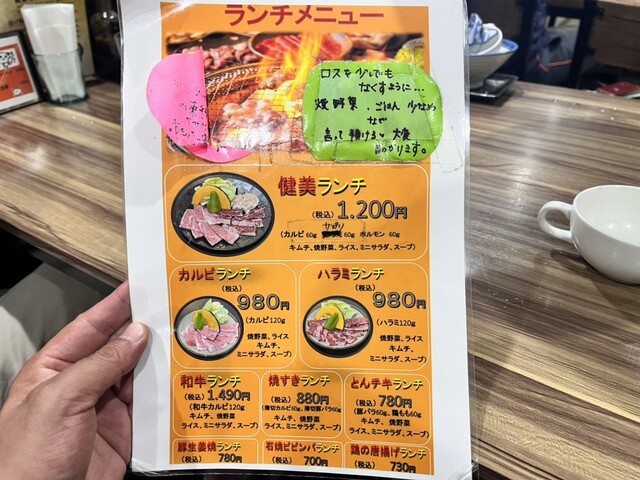 ランチメニュー
ロスを少しでも
なくすように…
焼野菜、ごはん 少なめ
など
言って頂けると 大変
助かります。
健美ランチ
(税込)1.200円
(カルビ 60g 60g ホルモン 60g
キムチ、焼野菜、ライス、ミニサラダ、スープ)
カルビランチ
(税込)
980円
(カルビ120g
焼野菜、ライス
キムチ、
ミニサラダ、スープ)
ハラミランチ
(税込)
980円
(ハラミ120g
焼野菜、ライス
キムチ、
ミニサラダ、スープ)
和牛ランチ
(税込)1.490円
(和牛カルビ120g
キムチ、焼野菜
ライス、ミニサラダ、スープ)
焼すきランチ
(税込)880円
(薄切カルビ60g、薄切豚バラ60g
キムチ、焼野菜
ライス、ミニサラダ、スープ)
とんテキランチ
(税込)780円
(豚バラ60g、鶏もも60g
キムチ、焼野菜
ライス、ミニサラダ、スープ)
豚生姜焼ランチ
(税込)780円
石焼ビビンバランチ
(税込)700円
鶏の唐揚げランチ
(税込)730円